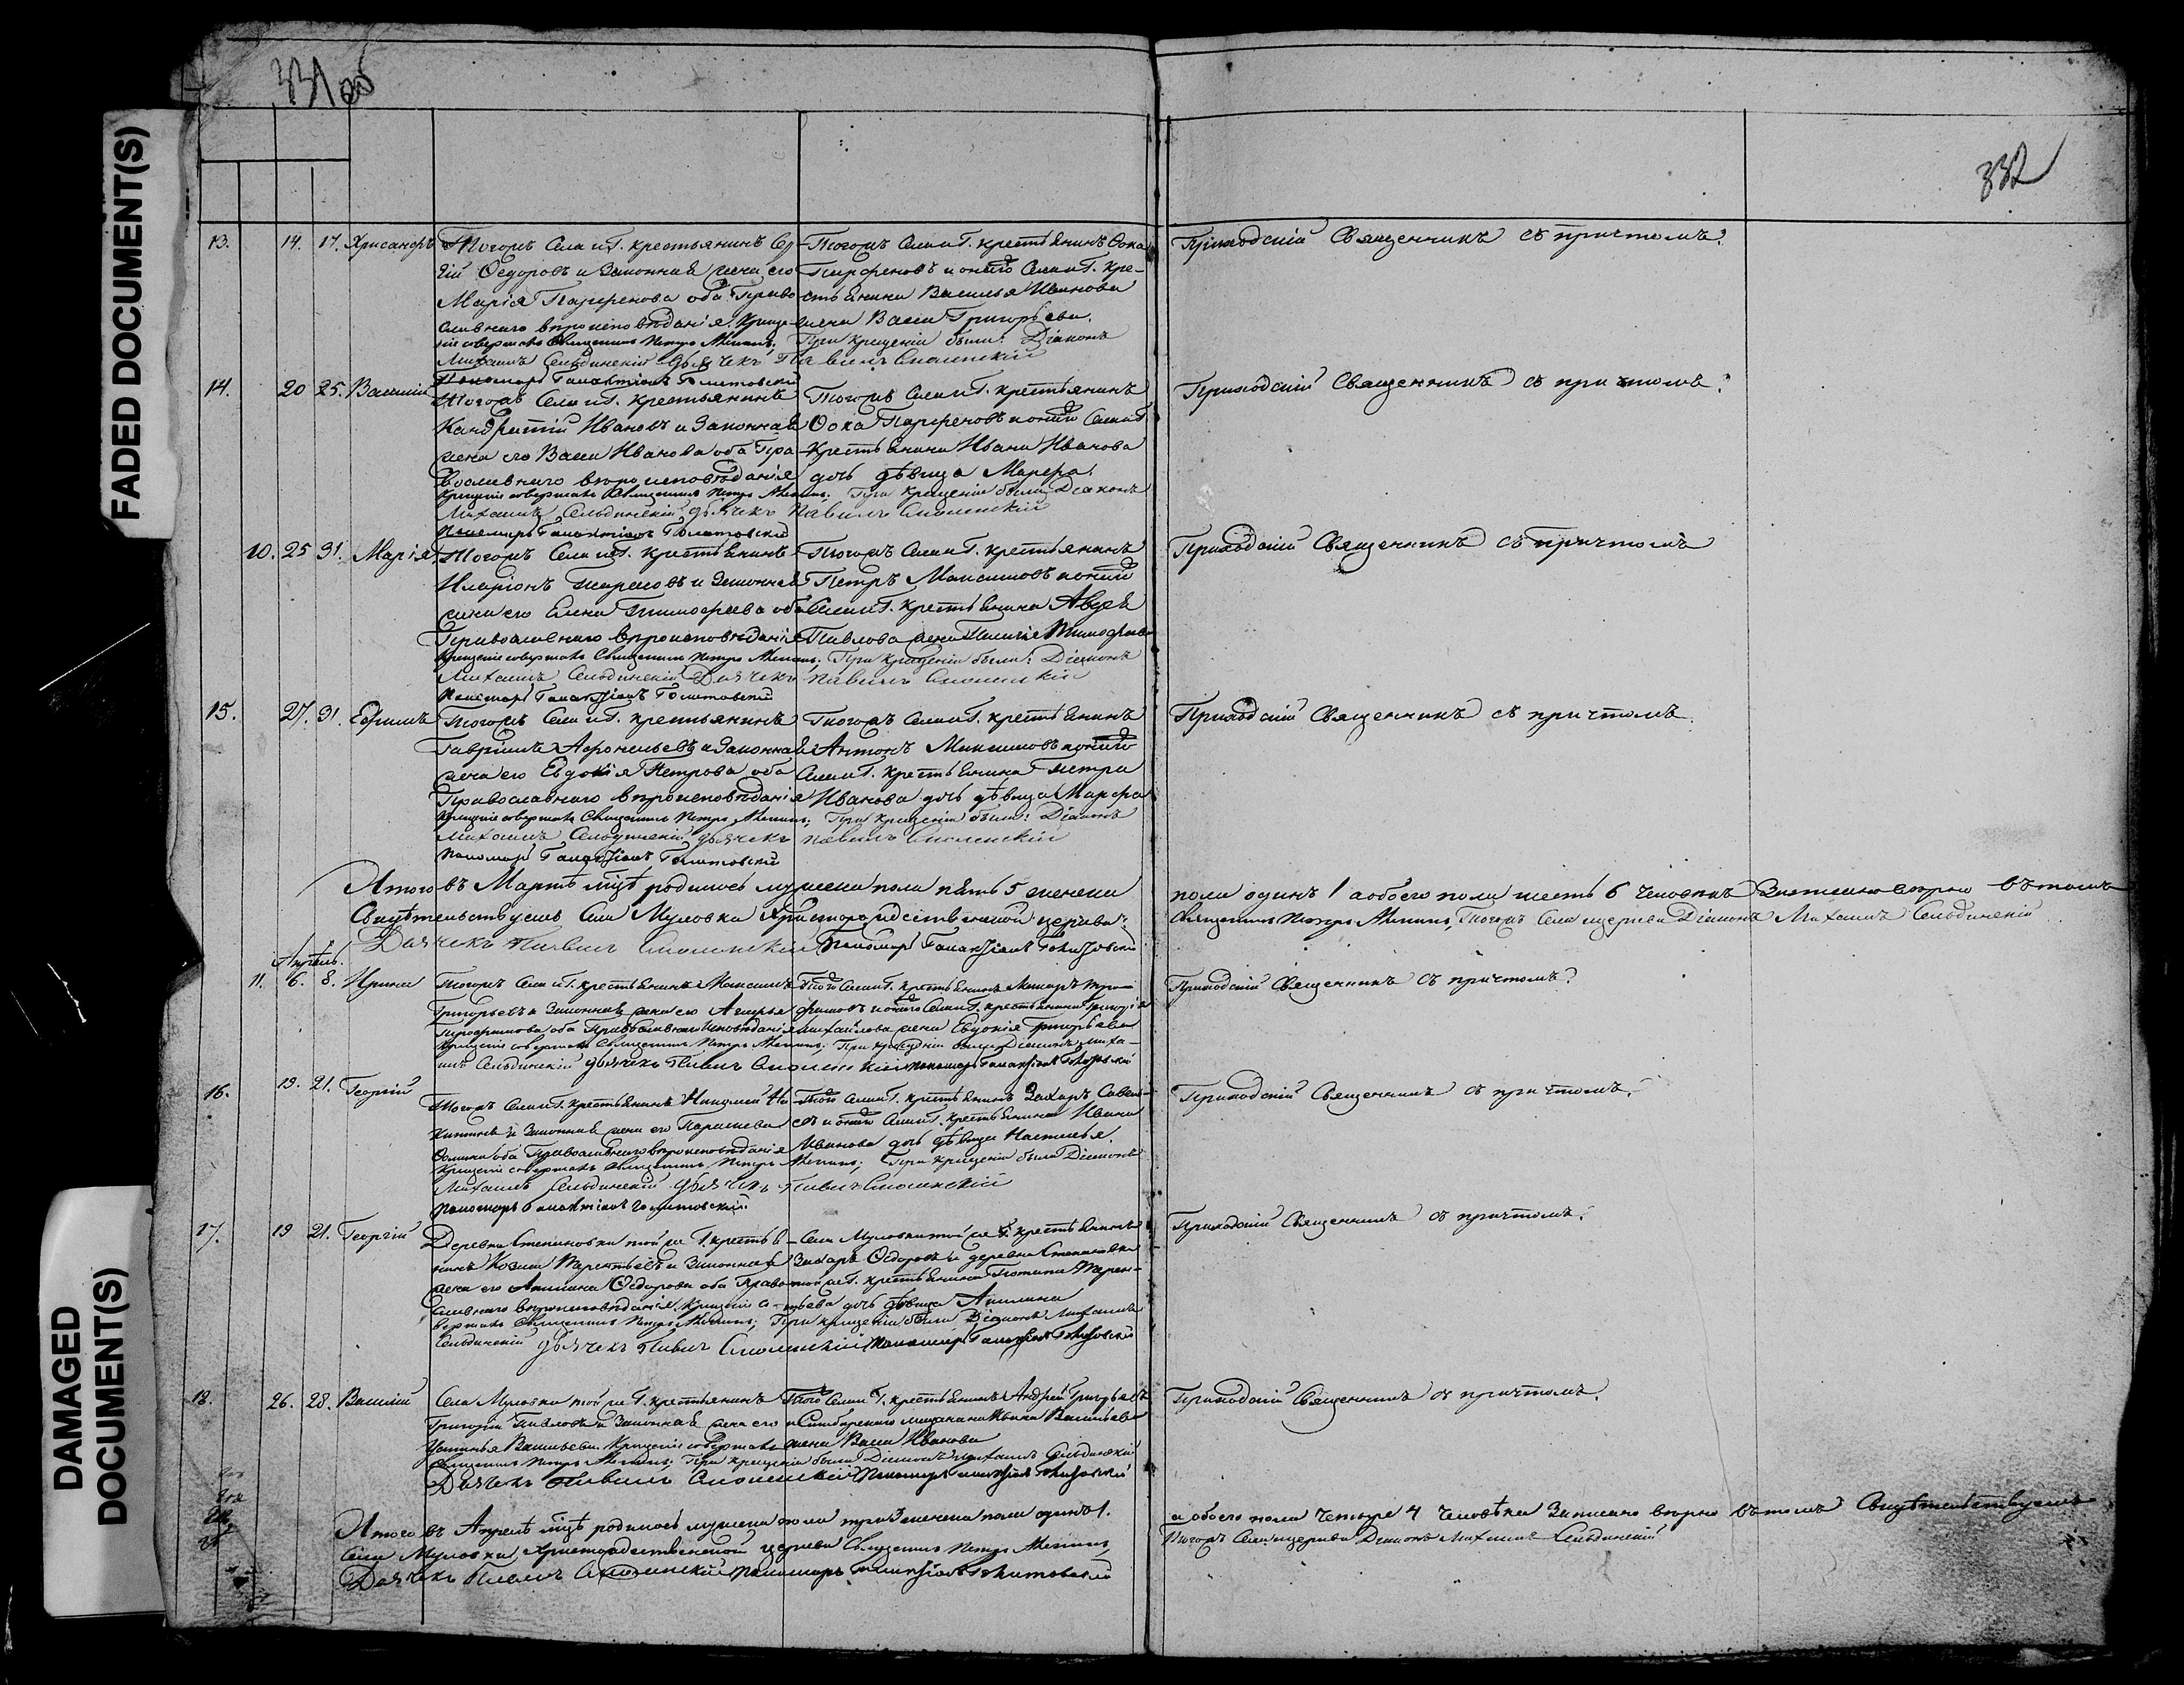 FADED DOCUMENT(S)
DAMAGED
DOCUMENT(S)
331
332
13. 14. 17. Хрисанфъ
Тогожъ Села и Г. крестьянинъ Сер-
гій Ѳедоровъ и Законная жена его
Марія Парфенова оба Право-
славнаго вѣроисповѣданія. Креще-
ніе совершалъ Священникъ Петръ
Тогожъ Села и Г. крестьянинъ Ѳока
Парфеновъ и онаго Села и Г. кре-
стьянина Василья Иванова
жена Васса Григорьева.
При крещеніи были: Діаконъ
Михаилъ Сельдинскій Дьячекъ Павелъ Смоленскій
Пономарь Галактіонъ
Приходскій Священникъ съ причтомъ.
14. 20 25. Василій
Тогожъ Села и Г. крестьянинъ
Иановъ и Законная
жена его Васса Иванова оба Пра-
вославнаго вѣроисповѣданія
Крещеніе совершалъ Священникъ Петръ
Тогожъ Села и Г. крестьянинъ
Ѳока Парфеновъ и онаго Села и Г.
Крестьянина Ивана Иванова
дочь дѣвица Марѳа.
При крещеніи были Діаконъ
Михаилъ Сельдинскій дьячекъ Павелъ Смоленскій
Пономарь Галактіонъ
Приходскій Священникъ съ причтомъ.
10. 25 31. Марія
Тогожъ Села и Г. крестьянинъ
Иларіонъ и Законная
жена его Елена Тимофеева оба
Православнаго вѣроисповѣданія
Крещеніе совершалъ Священникъ Петръ
Тогожъ Села и Г. крестьянинъ
Петръ Максимовъ и онаго
Села и Г. крестьянина Авдѣя
Павлова жена
При крещеніи были: Діаконъ
Михаилъ Сельдинскій Дьячекъ Павелъ Смоленскій
Пономарь Галактіонъ
Приходскій Священникъ съ причтомъ
15. 27. 31. Ефимъ
Тогожъ Села и Г. крестьянинъ
Гавріилъ и Законная
жена его Евдокія Петрова оба
Православнаго вѣроисповѣданія
Крещеніе совершалъ Священникъ Петръ
Тогожъ Села и Г. крестьянинъ
Антонъ Максимовъ и онаго
Села и Г. крестьянина Петра
Иванова дочь дѣвица Марѳа
При крещеніи были: Діаконъ
Михаилъ Сельдинскій дьячекъ Павелъ Смоленскій
Пономарь Галактіонъ
Приходскій Священникъ съ причтомъ.
Итого въ Мартѣ мцѣ родилось мужеска пола пять 5 женска
пола одинъ 1 а обоего пола шесть 6 человѣкъ Записано вѣрно въ томъ
Свидѣтельствуемъ Села Муловки Христорождественской церкви:
Священникъ Петръ Тогожъ Села церкви Діаконъ Михаилъ Сельдинскій
Дьячекъ Павелъ Смоленскій Пономарь Галактіонъ
Апрѣль.
11. 6. 8. Ирина
Тогожъ Села и Г. крестьянинъ Максимъ
Григорьевъ и Законная жена его
оба Православнаго исповѣданія
Крещеніе совершалъ Священникъ Петръ
Того Села и Г. крестьянинъ
и онаго Села и Г. крестьянина
Михайлова жена Евдокія Григорьева
При крещеніи были Діаконъ Миха-
илъ Сельдинскій дьячекъ Павелъ Смоленскій пономарь Галактіонъ
Приходскій Священникъ съ причтомъ.
16. 19. 21. Георгій
Тогожъ Села и Г. крестьянинъ Николай Ни-
китинъ и Законная жена его
Ѳомина оба Православнаго вѣроисповѣданія
Крещеніе совершалъ Священникъ Петръ
Того Села и Г. крестьянинъ Захаръ Савель-
евъ и онаго Села и Г. крестьянина Ивана
Иванова дочь дѣвица Наталья.
При крещеніи были Діаконъ
Михаилъ Сельдинскій дьячекъ Павелъ Смоленскій
пономарь Галактіонъ
Приходскій Священникъ съ причтомъ.
17. 19 21. Георгій
Деревни Степановки той же Г. крестья-
нинъ Козма и Законная
жена его Акилина Ѳедорова оба Право-
славнаго вѣроисповѣданія. Крещеніе со-
вершалъ Священникъ Петръ
Села Муловки той же Г. крестьянинъ
Захаръ Ѳедоровъ и деревни Степановки
той же Г. крестьянина
дочь дѣвица Акилина
При крещеніи были Діаконъ Михаилъ
Сельдинскій дьячекъ Павелъ Смоленскій пономарь Галактіонъ
Приходскій Священникъ съ причтомъ.
18. 26. 28. Василій
Села Муловки той же Г. крестьянинъ
Григорій Павловъ и Законная жена его
Устинья Васильева. Крещеніе совершалъ
Священникъ Петръ
Того Села и Г. крестьянинъ Андрей Григорьевъ
и Симбирскаго мещанина Ивана Васильева
жена Васса Иванова
При крещеніи были Діаконъ Михаилъ Сельдинскій
Дьячекъ Павелъ Смоленскій Пономарь Галактіонъ
Приходскій Священникъ съ причтомъ.
Итого въ Апрелѣ мцѣ родилось мужеска пола три женска пола одинъ 1.
а обоего пола четыре 4 человѣка Записано вѣрно въ томъ Свидѣтельствуемъ
Села Муловки Христорождественской церкви Священникъ Петръ
Тогожъ Села церкви Діаконъ Михаилъ Сельдинскій
Дьячекъ Павелъ Смоленскій пономарь Галактіонъ